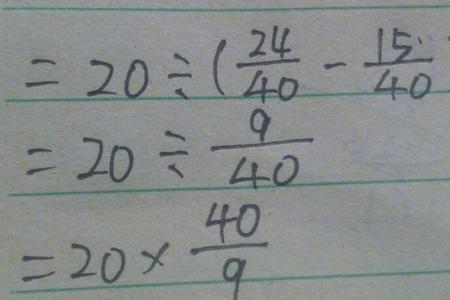 = 20 ÷ ( 24/40 - 15/40
= 20 ÷ 9/40
= 20 × 40/9